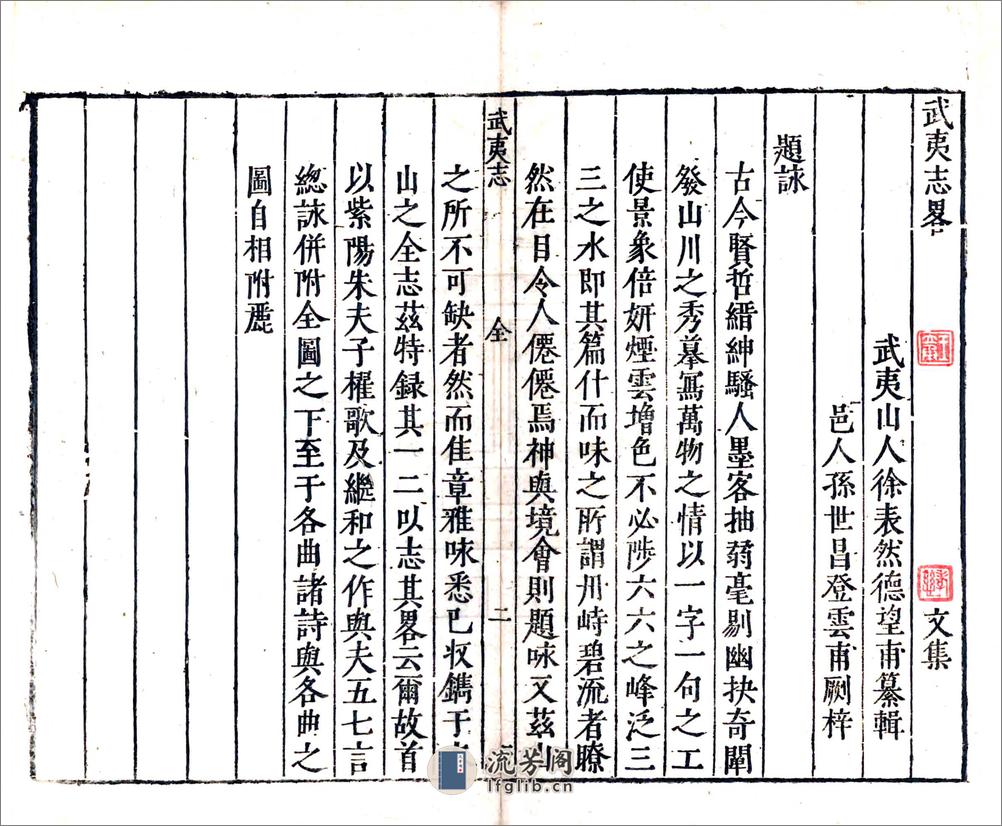 武夷志畧 文集
武夷山人徐表然德望甫纂輯
邑人孫世昌登雲甫劂梓
題詠
古今賢哲縉紳騷人墨客抽弱毫剔幽抉奇闡
發山川之秀摹寫萬物之情以一字一句之工
使景象倍妍煙雲增色不必陟六六之峰泛三
三之水即其篇什而味之所謂丹峙碧流者瞭
然在目令人僊僊焉神與境會則題咏又茲山
武夷志 全 二
之所不可缺者然而佳章雅咏悉已収鐫于
山之全志茲特録其一二以志其畧云爾故首
以紫陽朱夫子櫂歌及繼和之作與夫五七言
總詠併附全圖之下至于各曲諸詩與各曲之
圖自相附麗
流芳閣
lfglib.cn